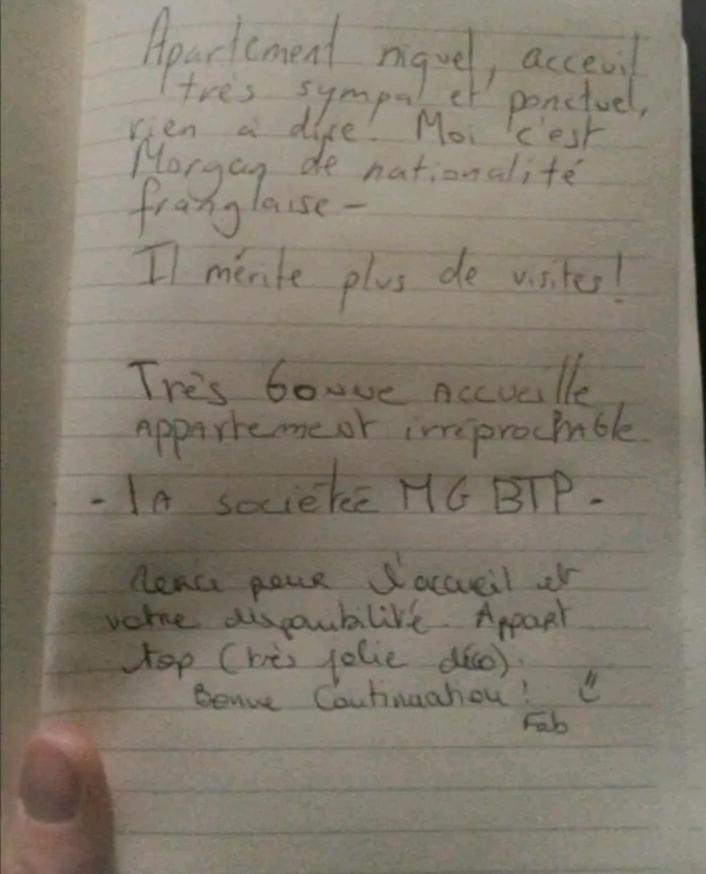 Apartement niquel, acceuil
très sympa et ponctuel,
rien à dire. Moi c'est
Morgan de nationalité
franglaise -
Il mérite plus de visites!
Très bonne Accueille
Appartement irréprochable
- la société MG BTP -
Merci pour l'accueil et
votre disponibilité. Appart
top (très jolie déco).
Bonne Continuation!
Fab